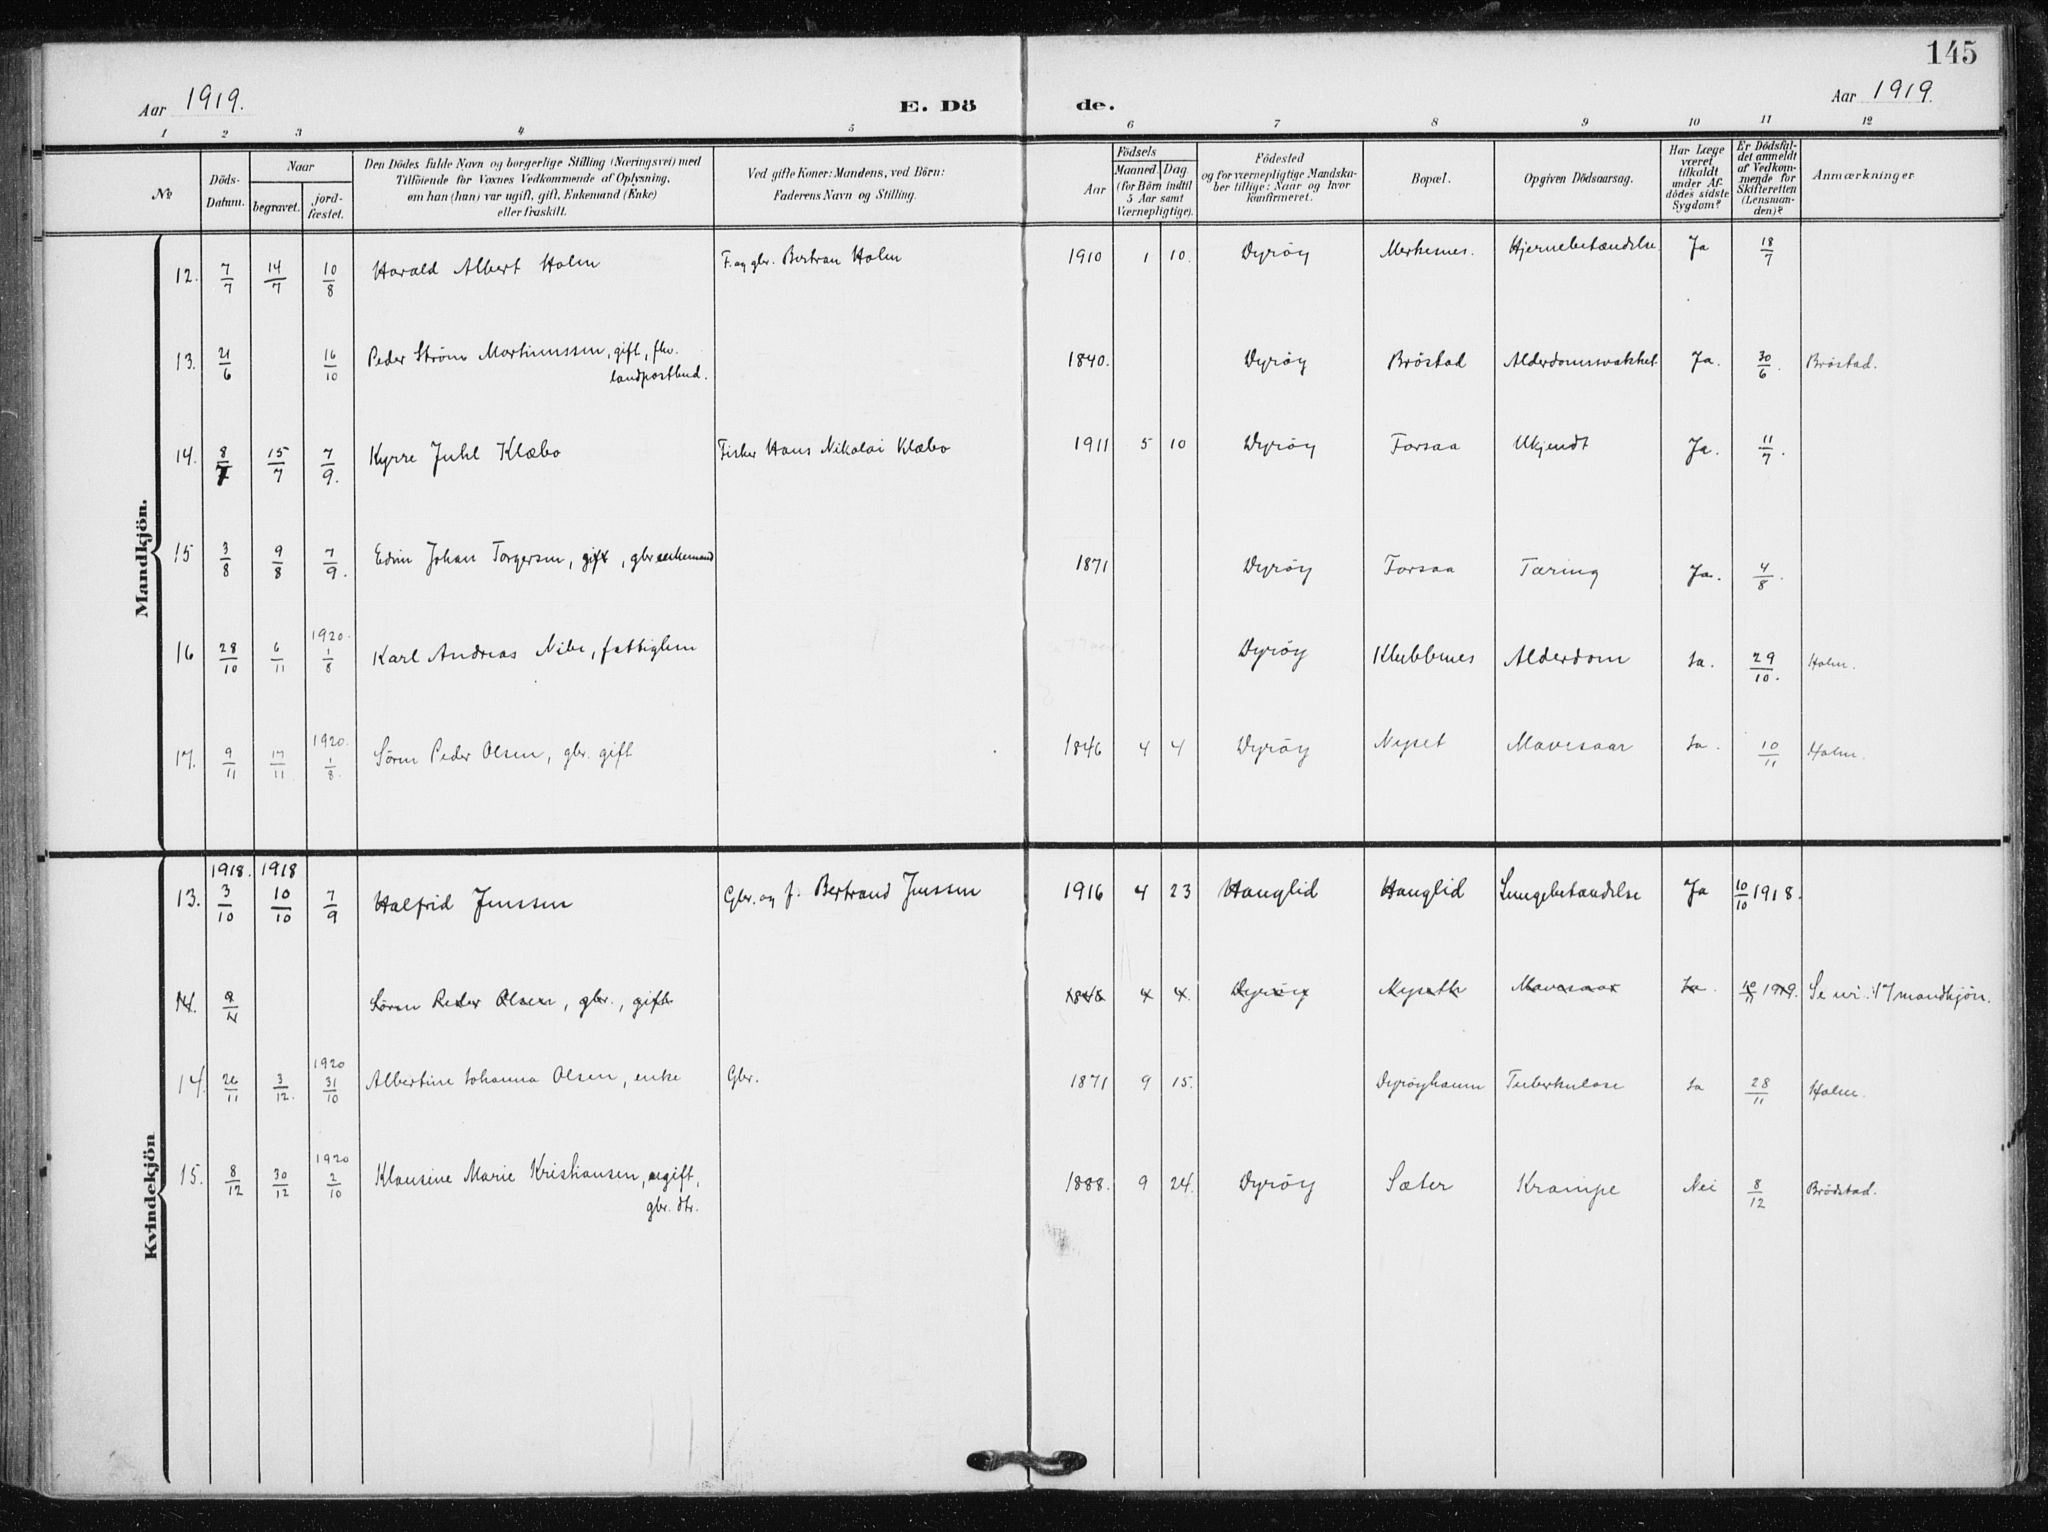 145
Aar 1919. E. Dö de. Aar 1919.
1 2 3 4 5 6 7 8 9 10 11 12
No
Döds-Datum.
Naar
begravet.
jord-fæstet.
Den Dödes fulde Navn og borgerlige Stilling (Næringsvei) med
Tilföiende for Voxnes Vedkommende af Oplysning,
om han (hun) var ugift, gift, Enkemand (Enke)
eller fraskilt.
Ved gifte Koner: Mandens, ved Börn:
Faderens Navn og Stilling.
Födsels
Aar
Maaned. Dag
(for Börn indtil
5 Aar samt
Værnepligtige).
Födested
og for værnepligtige Mandska-
ber tillige: Naar og hvor
konfirmeret.
Bopæl.
Opgiven Dödsaarsag.
Har Læge
været
tilkaldt
under Af-
dödes sidste
Sygdom?
Er Dödsfal-
det anmeldt
af Vedkom-
mende for
Skifteretten
(Lensman-
den)?
Anmærkninger
Mandkjön.
12. 7/7 14/7 10/8 Harald Albert Holm F. og gbr. Bertran Holm 1910 1 10. Dyrøy Merkesnes. Hjernebetændelse Ja 18/7
13. 21/6 16/10 Peder Strøm Martinussen, gift, fhv. 1840. Dyrøy Brøstad Alderdomsvakhet Ja. 30/6. Brøstad.
landpostbud.
14. 8/7 15/7 7/9. Kyrre Juhl Klæbo Fisker Hans Nikolai Klæbo 1911 5 10 Dyrøy Forsaa Ukjendt Ja. 11/7.
15 3/8 9/8 7/9. Edvin Johan Torgersen, gift, gbr enkemand 1871 Dyrøy Forsaa Tæring Ja. 4/8.
1920.
16 28/10 6/11 1/8 Karl Andreas Nibe, fattiglem Dyrøy Klubbenes Alderdom Ja. 29/10. Holm.
1920.
17. 9/11 17/11 1/8. Søren Peder Olsen, gbr. gift 1846 4 4 Dyrøy Nyset Mavesaar Ja. 10/11 Holm.
Kvindekjön
1918. 1918
13. 3/10 10/10 7/9 Halfrid Jenssen Gbr. og f. Bertrand Jenssen 1916 4 23 Hanglid Hanglid Lungebetændelse Ja 10/10 1918.
14. 9/11 Søren Peder Olsen, gbr., gift 1846 4 4. Dyrøy Nyseth Mavesaar Ja. 10/11 1919. Se nr. 17 mandkjøn.
1920
14. 26/11 3/12. 31/10 Albertine Johanna Olsen, enke Gbr. 1871 9 15. Dyrøyhamn Tuberkulose Ja 28/11 Holm.
1920
15. 8/12 30/12 2/10 Klausine Marie Kristiansen, ugift, 1888. 9 24. Dyrøy Sæter Krampe Nei 8/12 Brøstad.
gbr. dtr.